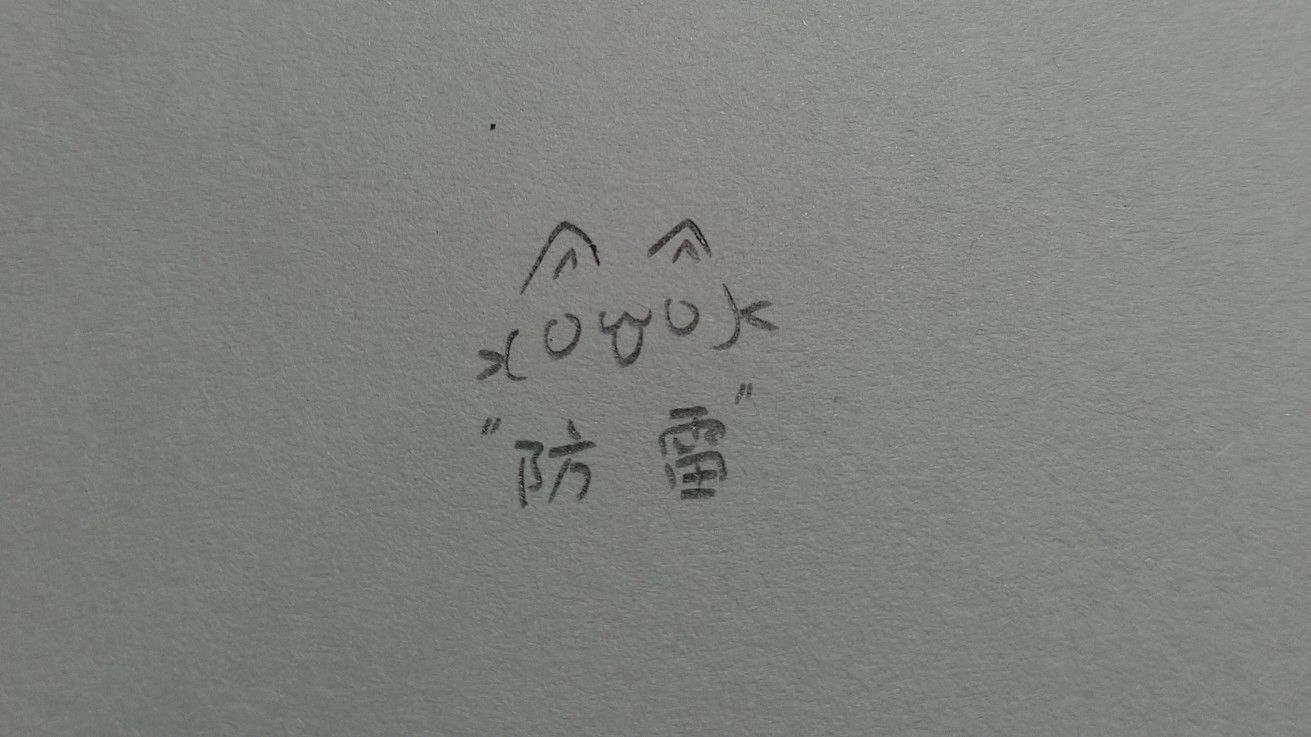 "防雷"